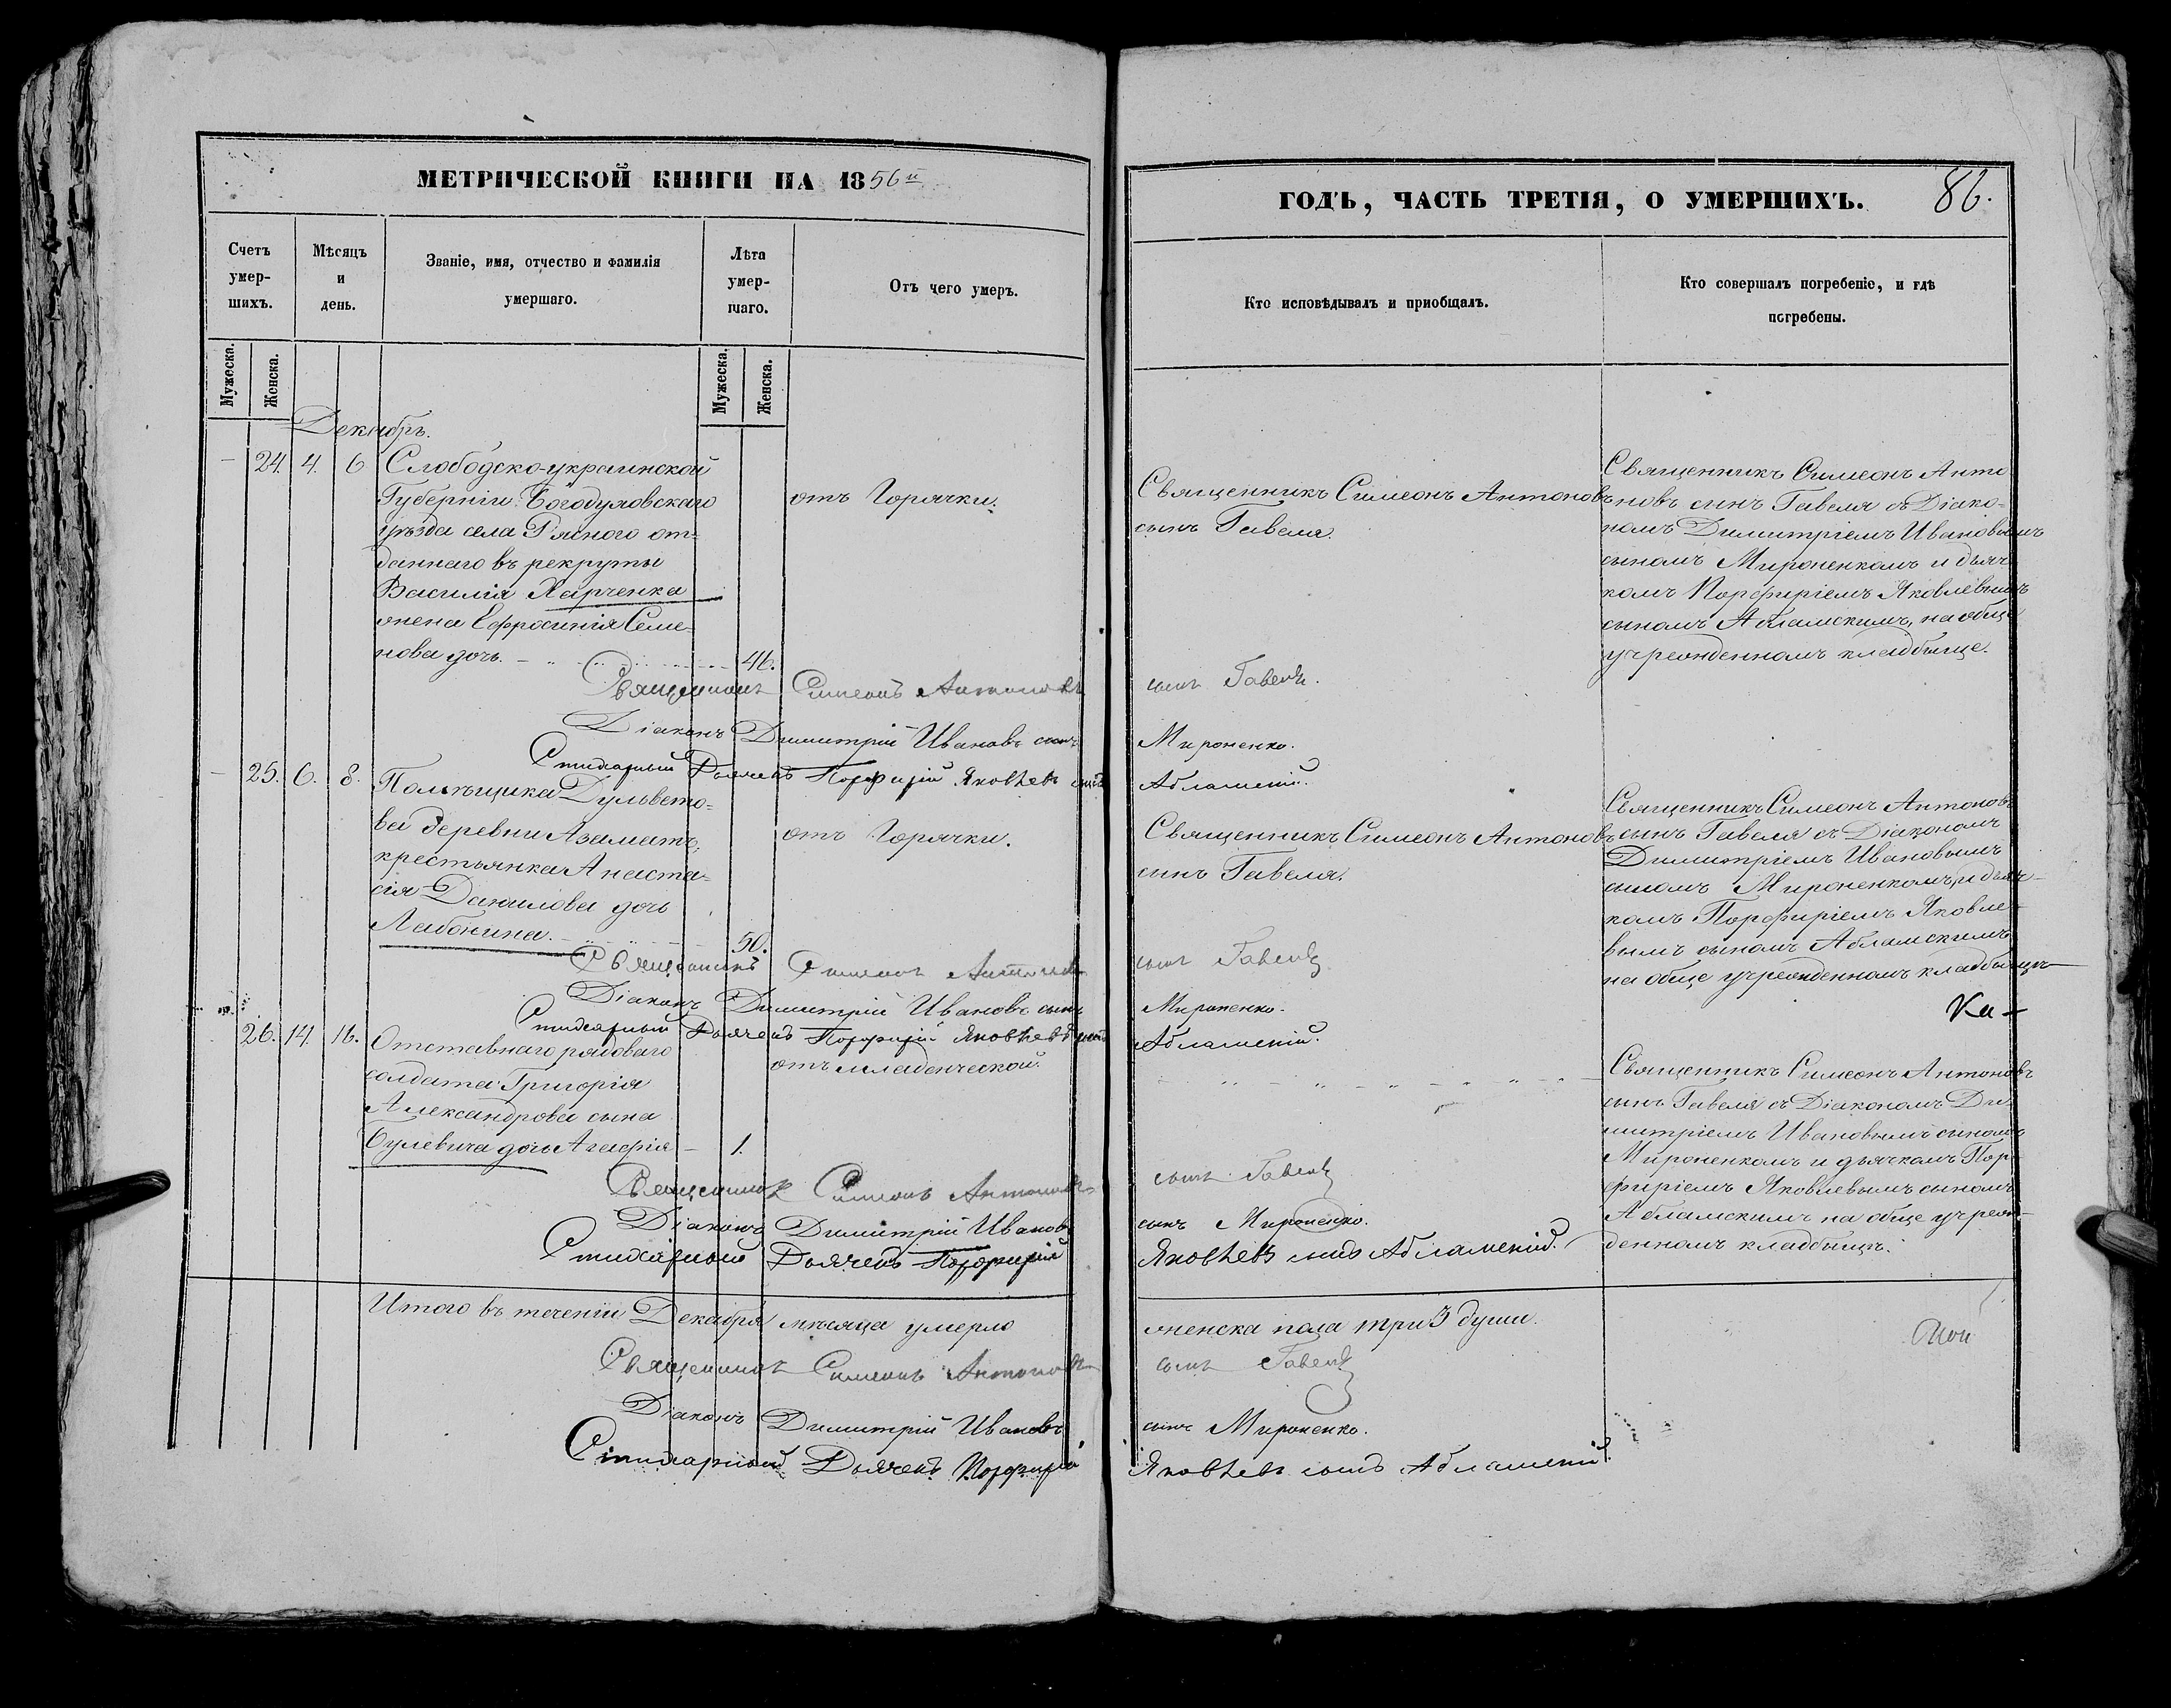 МЕТРИЧЕСКОЙ КНИГИ НА 1856й
Счетъ умер-шихъ.
Мѣсяцъ и день.
Званіе, имя, отчество и фамилія умершаго.
Лѣта умер-шаго.
Отъ чего умеръ.
Мужеска.
Женска.
Мужеска.
Женска.
Декабрь.
— 24. 4. 6 Слободско-украинской
Губерніи Богодуховскаго
уѣзда села Ряснаго от-
даннаго въ рекруты
Василія Харченка
жена Ефросинія Семе-
нова дочь. 46.
отъ Горячки.
Священникъ Симеонъ Антоновъ
Діаконъ Димитрій Ивановъ сынъ
Стихарный Дьячекъ Порфирій Яковлевъ сынъ
— 25. 6. 8. Помѣщика Дульвето-
ва деревни Азаматъ,
крестьянка Анаста-
сія Данилова дочь
Лабонина. 50.
отъ Горячки.
Священникъ Симеонъ Антоновъ
Діаконъ Димитрій Ивановъ сынъ
Стихарный Дьячекъ Порфирій Яковлевъ сынъ
26. 14. 16. Отставнаго рядоваго
солдата Григорія
Александрова сына
Булевича дочь Агафія — 1.
отъ младенческой.
Священникъ Симеонъ Антоновъ
Діаконъ Димитрій Ивановъ
Стихарный Дьячекъ Порфирій
Итого въ теченіи Декабря мѣсяца умерло
Священникъ Симеонъ Антоновъ
Діаконъ Димитрій Ивановъ
Стихарный Дьячекъ Порфирій
ГОДЪ, ЧАСТЬ ТРЕТІЯ, О УМЕРШИХЪ.
86.
Кто исповѣдывалъ и приобщалъ.
Кто совершалъ погребеніе, и гдѣ
погребены.
Священникъ Симеонъ Антоновъ
сынъ Гавеля.
Священникъ Симеонъ Анто
новъ сынъ Гавеля съ Діако-
номъ Димитріемъ Ивановымъ
сыномъ Мироненкомъ и дьяч
комъ Порфиріемъ Яковлевымъ
сыномъ Абламскимъ, на обще
учрежденномъ кладбище.
сынъ Гавеля.
Мироненко.
Абламскій.
Священникъ Симеонъ Антоновъ
сынъ Гавеля.
Священникъ Симеонъ Антоновъ
сынъ Гавеля съ Діакономъ
Димитріемъ Ивановымъ
сыномъ Мироненкомъ, и дьяч-
комъ Порфиріемъ Яковле-
вымъ сыномъ Абламскимъ
на обще учрежденномъ кладбищѣ
сынъ Гавеля
Мироненко.
Абламскій.
Ка-
Священникъ Симеонъ Антоновъ
сынъ Гавеля съ Діакономъ Ди-
митріемъ Ивановымъ сыномъ
Мироненкомъ и дьячкомъ Пор-
фиріемъ Яковлевымъ сыномъ
Абламскимъ на обще учреж-
денномъ кладбищѣ.
сынъ Гавеля
сынъ Мироненко.
Яковлевъ сынъ Абламскій.
женска пола три 3 души.
сынъ Гавеля
сынъ Мироненко.
Яковлевъ сынъ Абламскій.